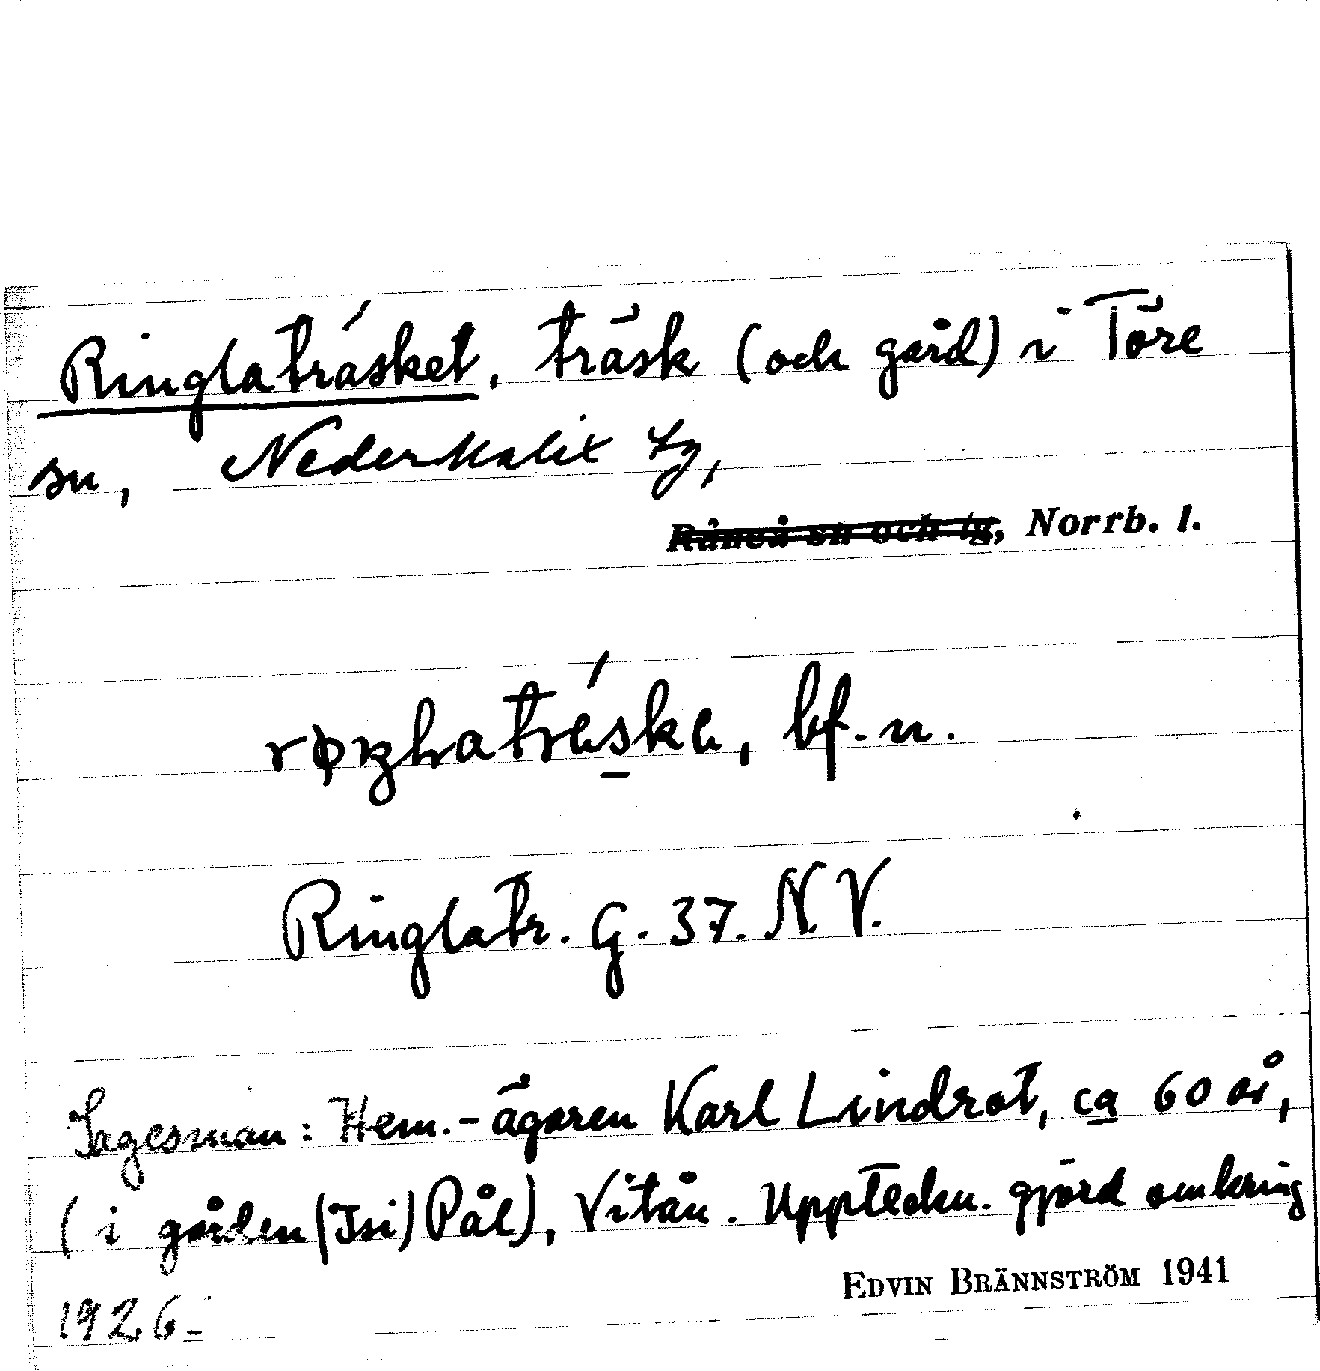 Ringlaträsket, träsk (och gård) i Töre
sn, Nederkalix tg,
Råneå sn och tg, Norrb. l.
bf. n.
Ringlatr. G. 37. N V.
Sagesman: Hem.-ägaren Karl Lindrot, ca 60 år,
(i gården (Isi) Pål), Vitån. Uppteckn. gjord omkring
EDVIN BRÄNNSTRÖM 1941
1926.